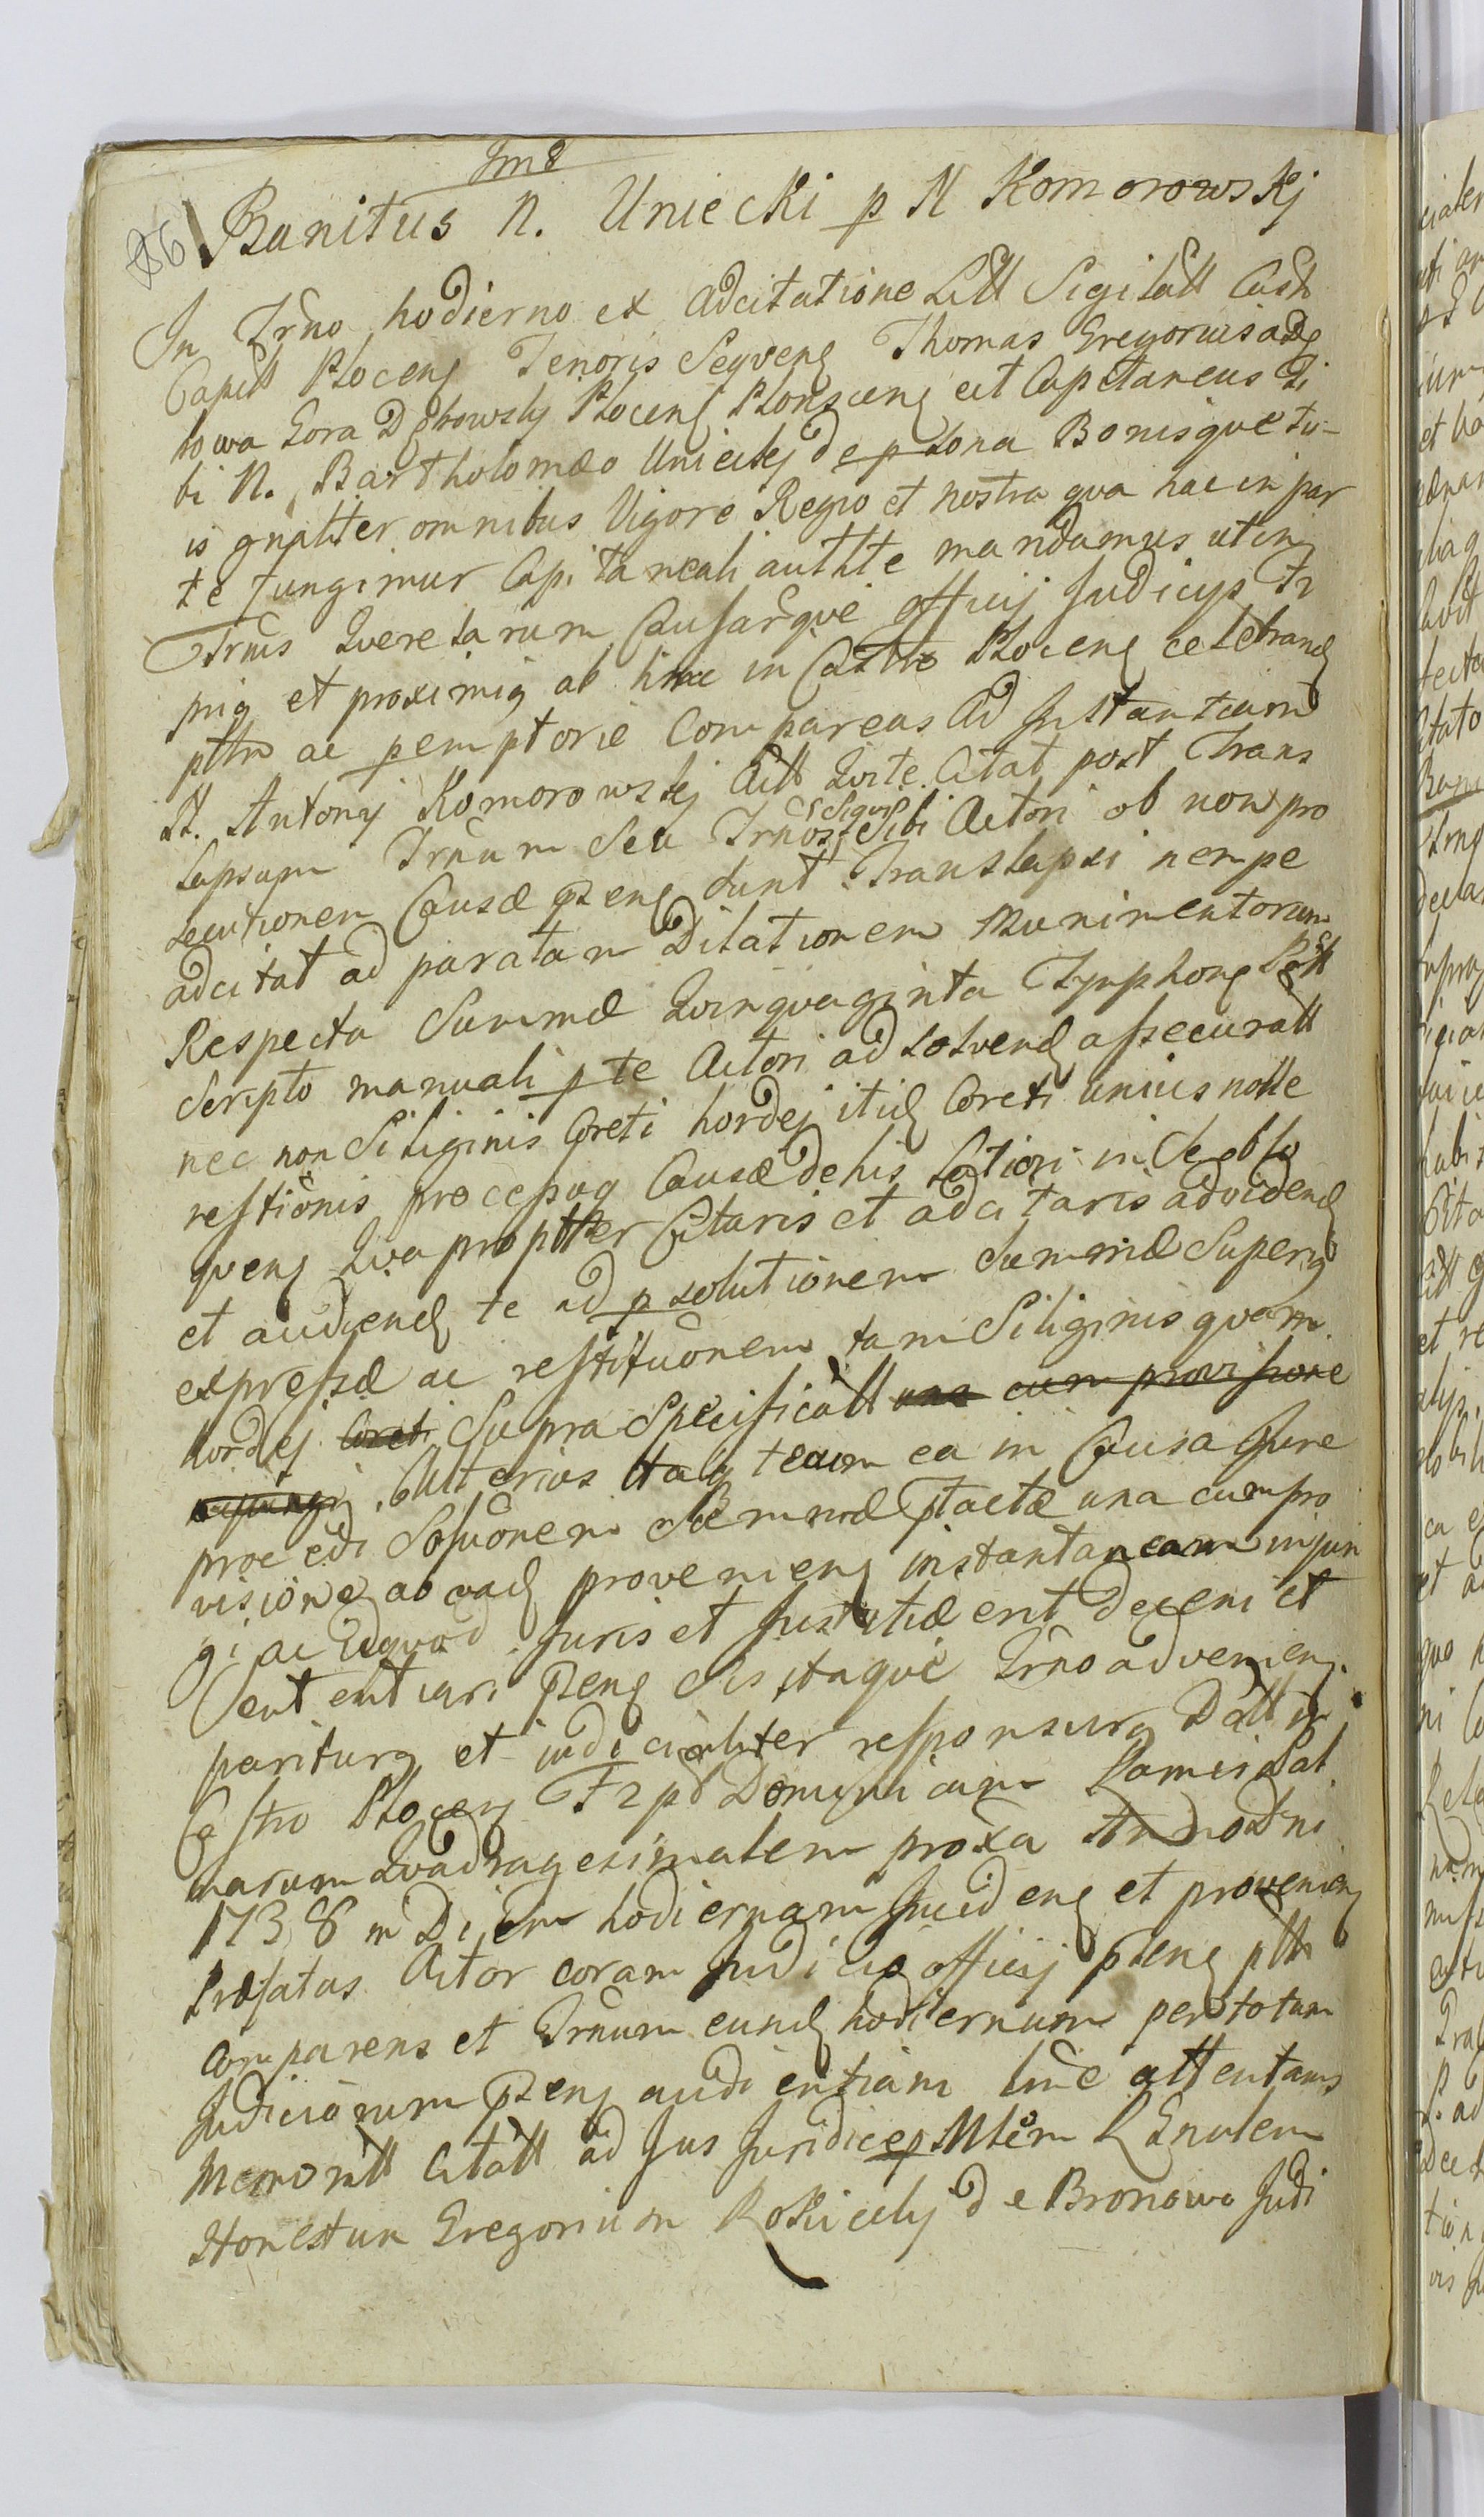 Im8
86 Banitus N. Uniecki p N Komorowskj
In Trno hodierno ex adcitatione Litt Sigilatt Cash
Capitt Ploceng Tenoris Seqveng Thomas Gregorius a Dę
bowa Gora Dębowsky Ploceng Plonsceng ect Capitaneus Ti
bi N. Bartholomæo Unieckj de psona Bonisqve tu-
is gnaliter omnibus Vigore Regio et nostra qva hac in par
te fungimur Capitaneali autthte mandamus ut in
Trnis Qverelarum Causarqve officij Judicijs Fr
piig et proximig ab hinc in Castro Ploceng celebrand
pttr ac pemptorie Compareas Ad Instantiam
N. Antonij Komorowskj Citt Qui te Citat post Trans
lapsum Trnum Seu Trnos Siqvi Sibi Actori ob non pro
secutionem Causæ pseng sunt Translapsi nempe
adcitat ad paratam Dilationem Munimentorum
Respectu Summæ Qvinqvaginta Tynphong
Scripto manuali p te Actori ad solvend assecuratt
nec non Siliginis Coreti hordej itid Coreti unius nolle
restiònis processug Causæ de his Latiori in Se oblo
qveng Qvapropttter Citaris et adcitaris ad vidend
et audiend te ad psolutionem Summæ Superig
expressæ ac restituònem tam Siliginis qvam
hordej Coreti Supra Specificatt una cum provisione
Ulterius Itaq tecum ea in Causa Jure
procedi Soluònem Summæ ptactæ una cum pro
visione ab ead provenieng instantaneam injun
gi ac Idqvod Juris et Justitiæ erit decerni et
Sententiari pseng Sis itaqve Trno advenieng
pariturg et judicialiter responsurg Datt in
Castro Ploceng F2 pd Dominicam Ramis Pal
marum Qvadragesimalem proxa Anno Dni
1738 in Diem hodiernam Incideng et provenieng
Præfatus Actor coram Judicio officij pseng pttr
Comparens et Trnum eund hodiernum per totam
Judiciorum pseng audientiam hucce attentans
Memoratt Citatt ad Jus Juridice p Mlem RGnalem
Honestum Gregorium Rokickj de Bronowo Judi